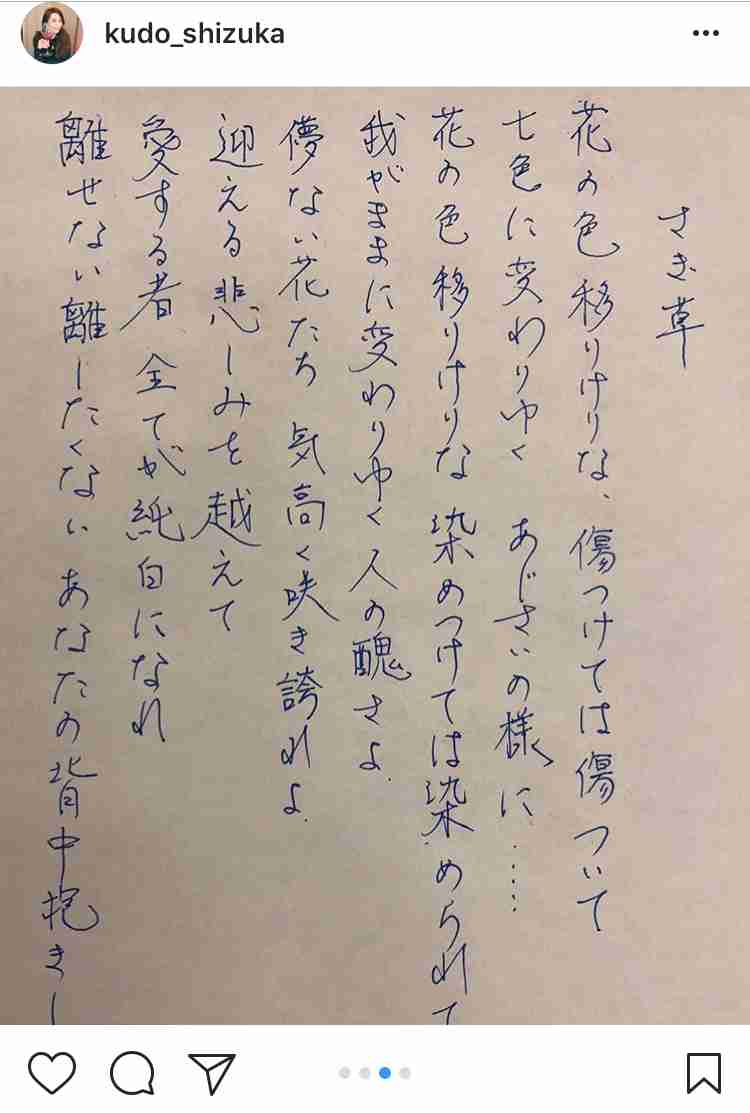 kudo_shizuka
さき草
花の色 移りけりな、傷つけては傷ついて
七色に変わりゆく あじさいの様に……
花の色 移りけりな 染めつけては染められて
我がままに変わりゆく人の醜さよ.
儚ない花たち 気高く咲き誇れよ.
迎える悲しみを越えて
愛する者、全てが純白になれ
離せない離したくない あなたの背中抱きし